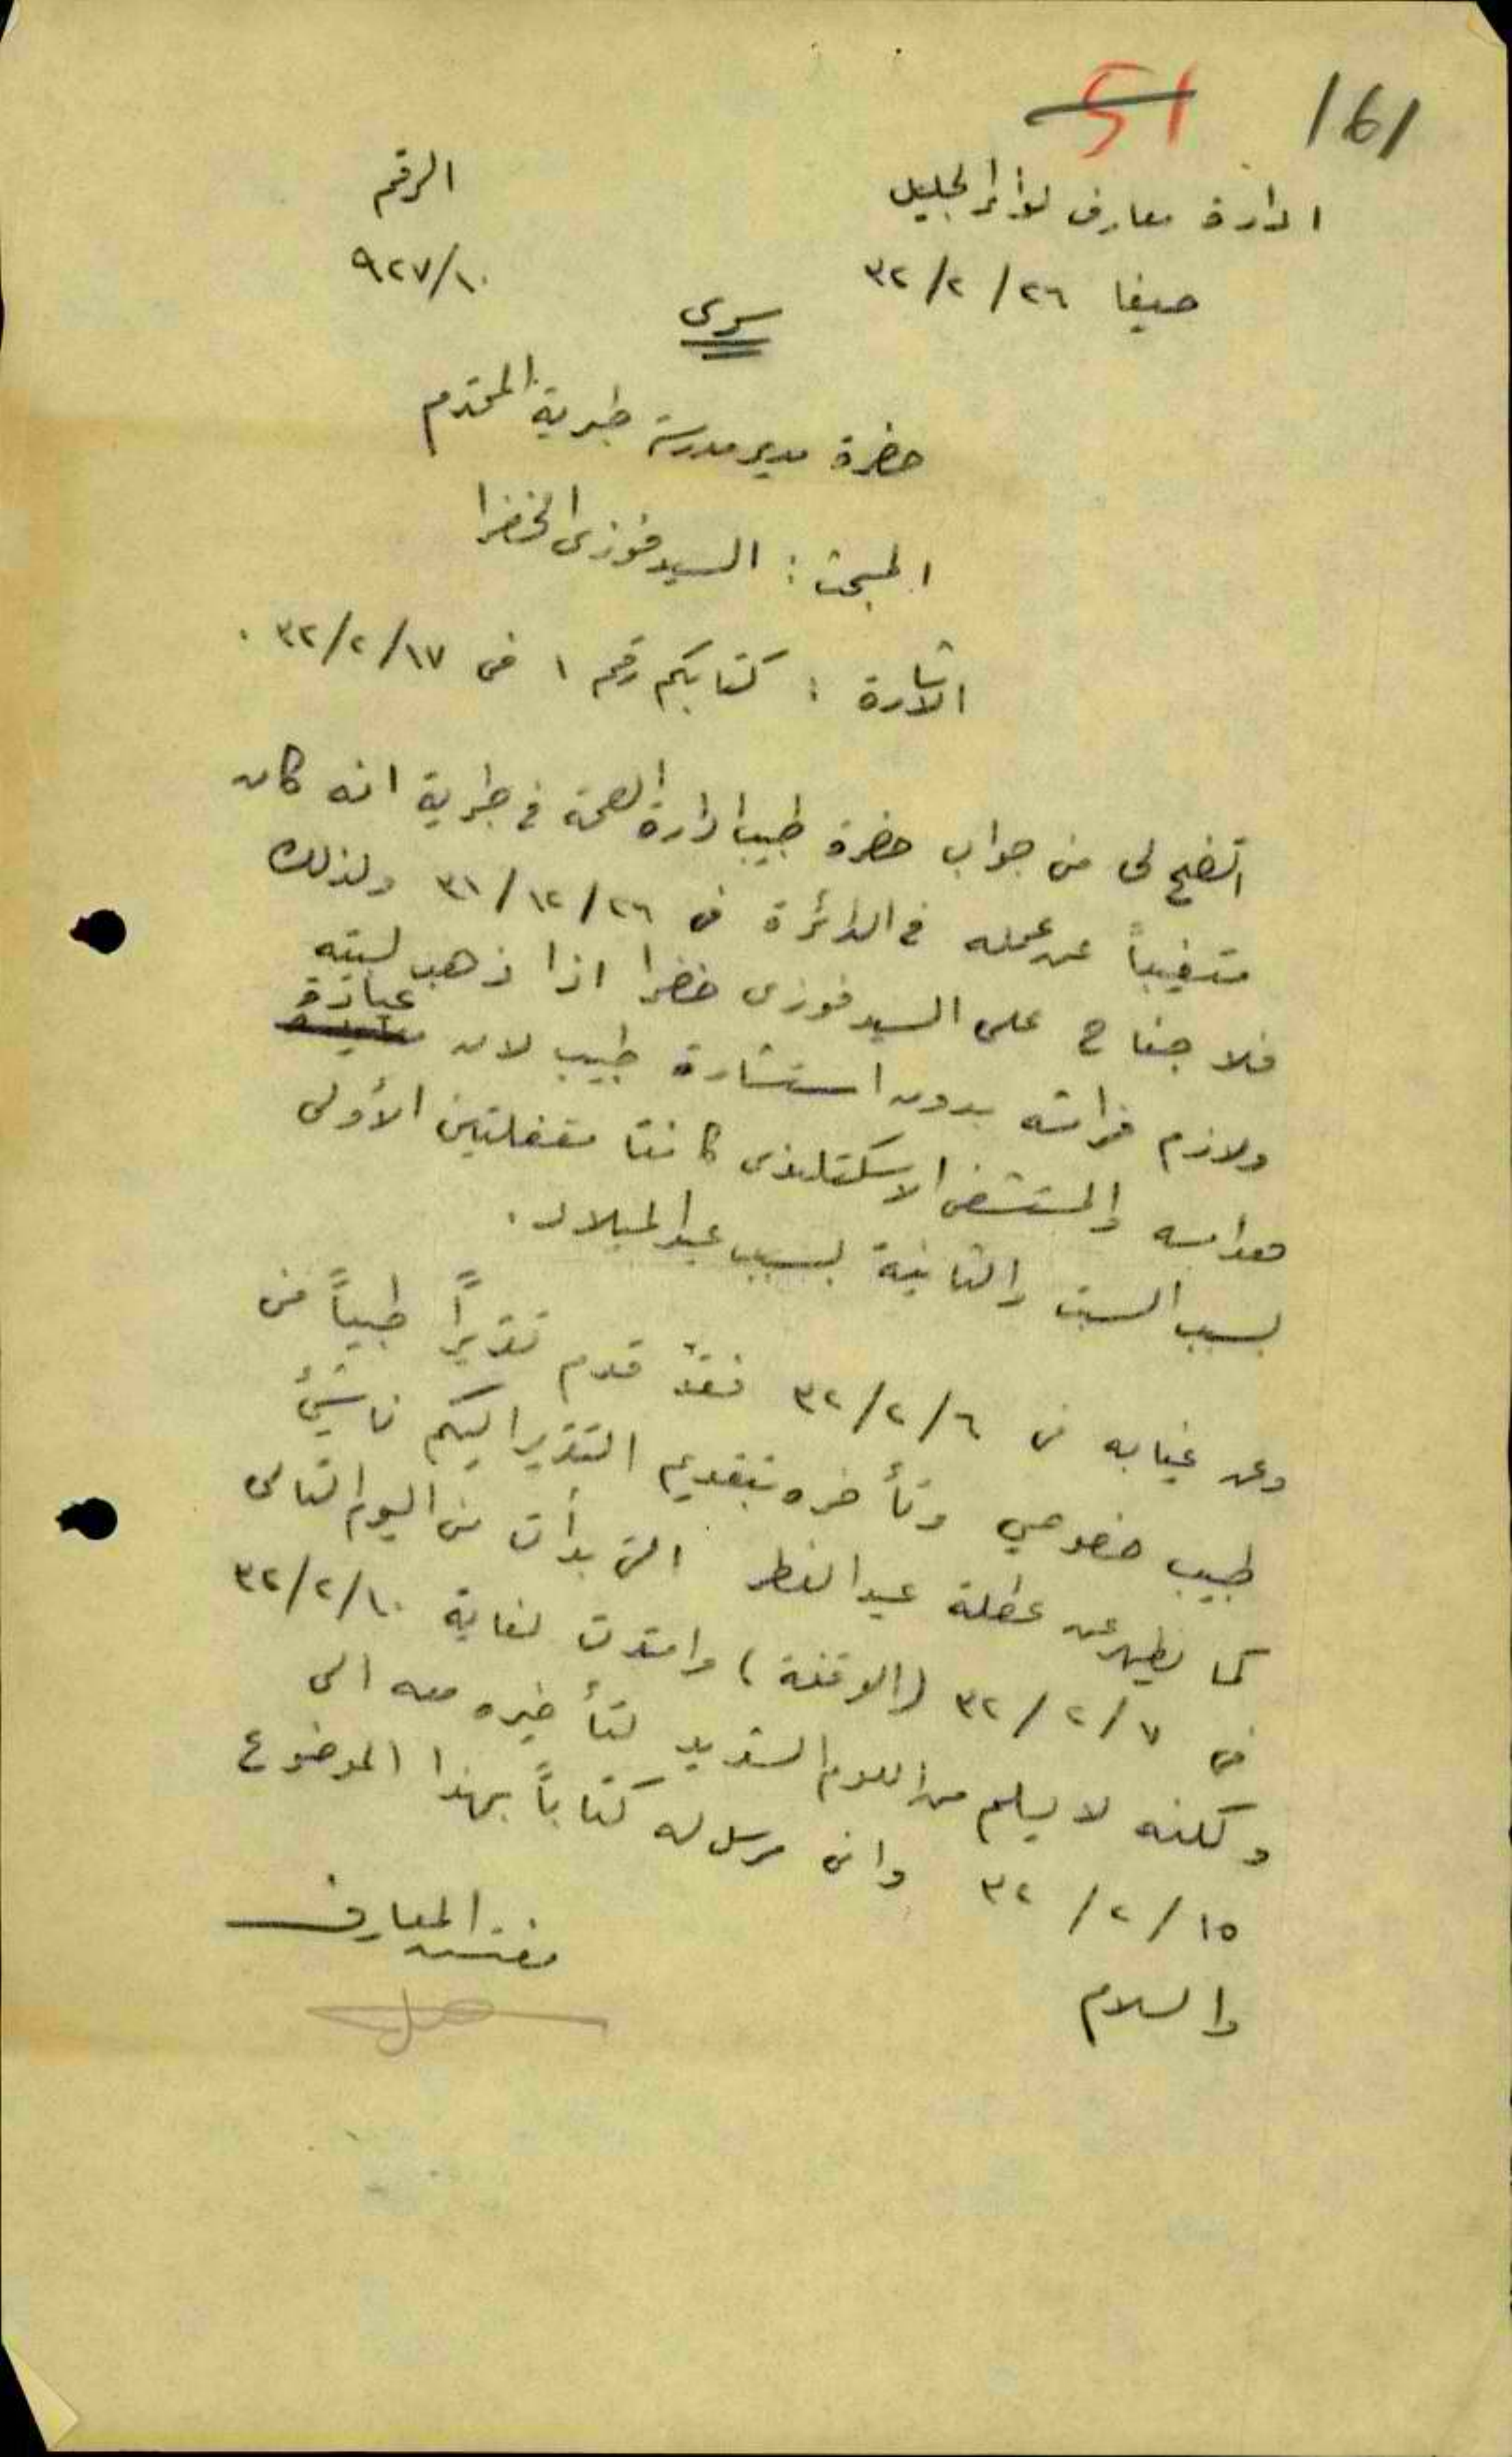 161
51
ادارة معارف لواء الجليل
الرقم
حيفا ٢٦/٢/٣٢
٩٢٧/١٠
سري
حضرة مدير مدرسة طبرية المحترم
المبحث : السيد فوزي الخضرا
الاشارة : كتابكم رقم ١ في ١٧/٢/٣٢ .
اتضح لي من جواب حضرة طبيب ادارة الصحة في طبرية انه كان
متغيباً عن عمله في الدائرة في ٢٦/١٢/٣١ ولذلك
فلا جناح على السيد فوزي خضرا اذا ذهب لبيته
ولازم فراشه بدون استشارة طبيب لان عيادة
هداسه والمستشفى الاسكتلندي كانتا مقفلتين الأولى
بسبب السبت والثانية بسبب عيد الميلاد .
وعن غيابه في ٦/٢/٣٢ فقد قدم تقريراً طبياً من
طبيب خصوصي وتأخره بتقديم التقرير اليكم ناشئ
كما يظهر عن عطلة عيد الفطر التي بدأت من اليوم التالي
في ٧/٢/٣٢ (الوقفة) وامتدت لغاية ١٠/٢/٣٢
ولكنه لا يسلم من اللوم الشديد لتأخيره معه الى
١٥/٢/٣٢ واني مرسل له كتاباً بهذا الموضوع
والسلام
مفتش المعارف